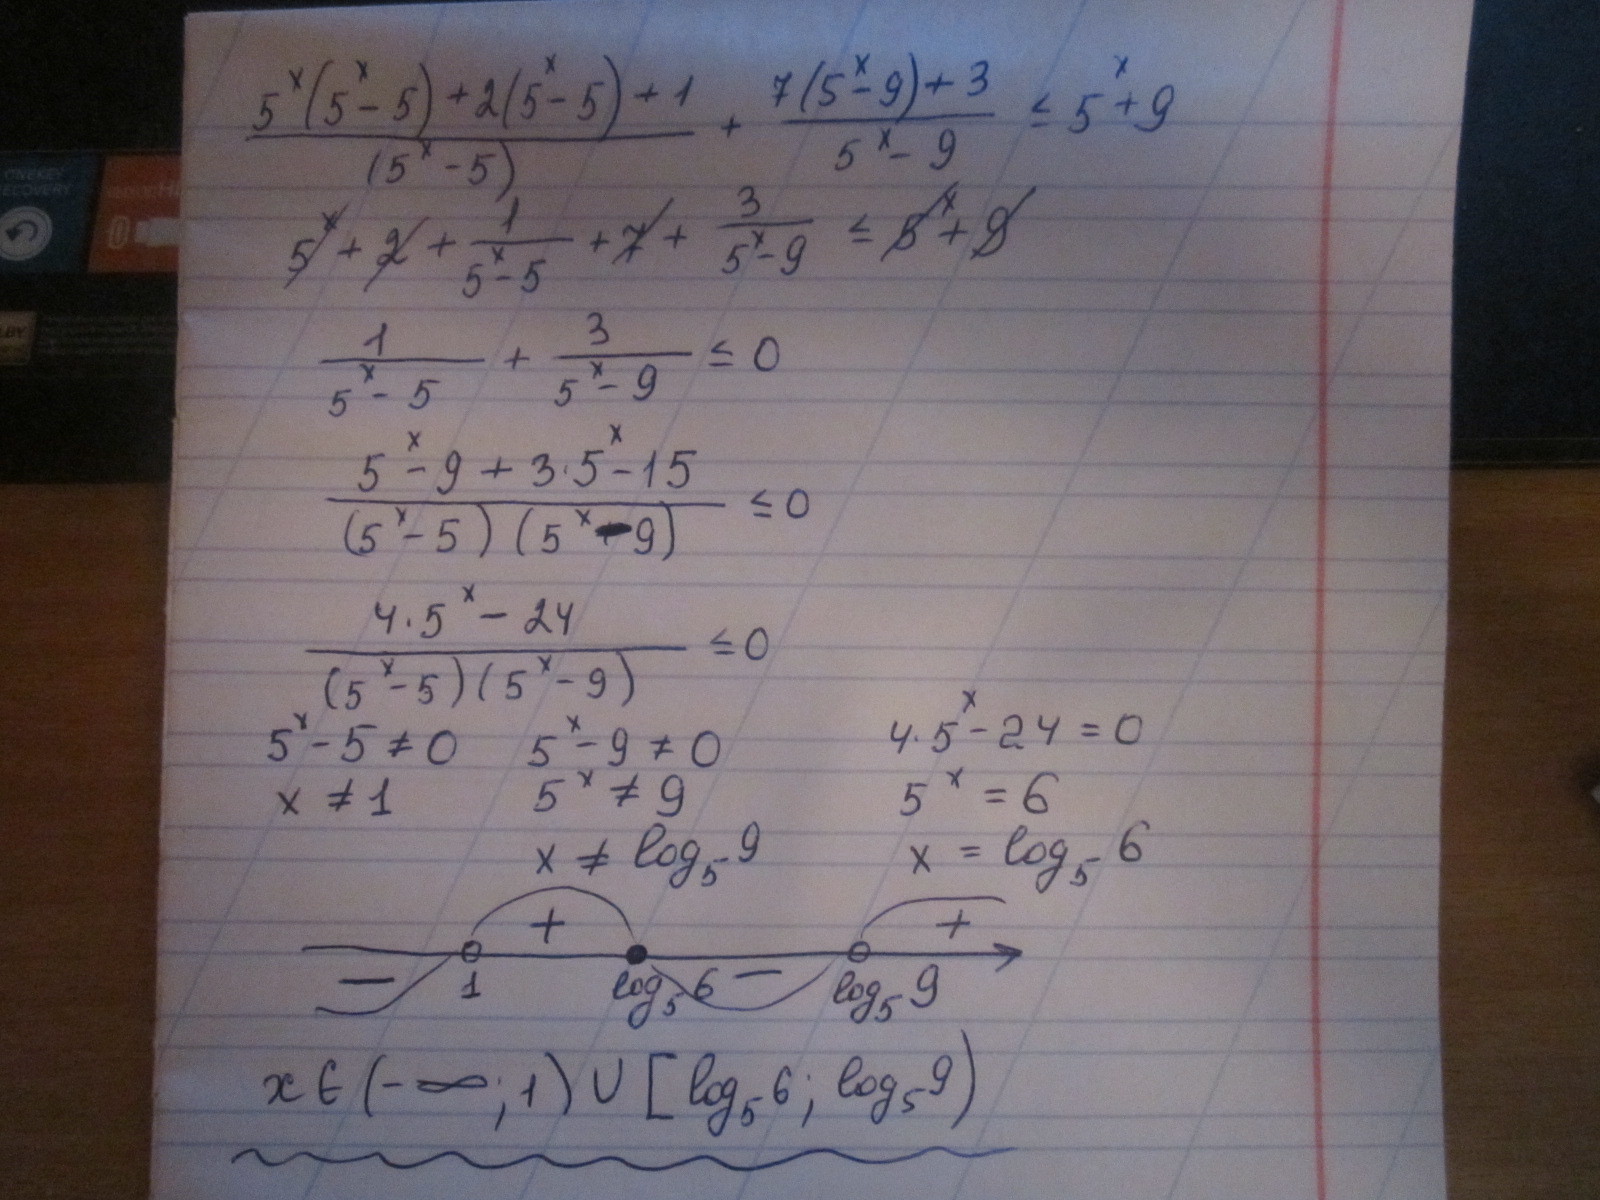 (5^x(5^x-5)+2(5^x-5)+1)/(5^x-5) + (7(5^x-9)+3)/(5^x-9) ≤ 5^x+9
5^x + 2 + 1/(5^x-5) + 7 + 3/(5^x-9) ≤ 5^x + 9
1/(5^x-5) + 3/(5^x-9) ≤ 0
(5^x-9+3·5^x-15)/((5^x-5)(5^x-9)) ≤ 0
(4·5^x-24)/((5^x-5)(5^x-9)) ≤ 0
5^x-5≠0 5^x-9≠0 4·5^x-24=0
x≠1 5^x≠9 5^x=6
x≠log₅9 x=log₅6
+ +
− 1 log₅6 − log₅9
x∈(-∞;1)∪[log₅6; log₅9)
ONEKEY
RECOVERY